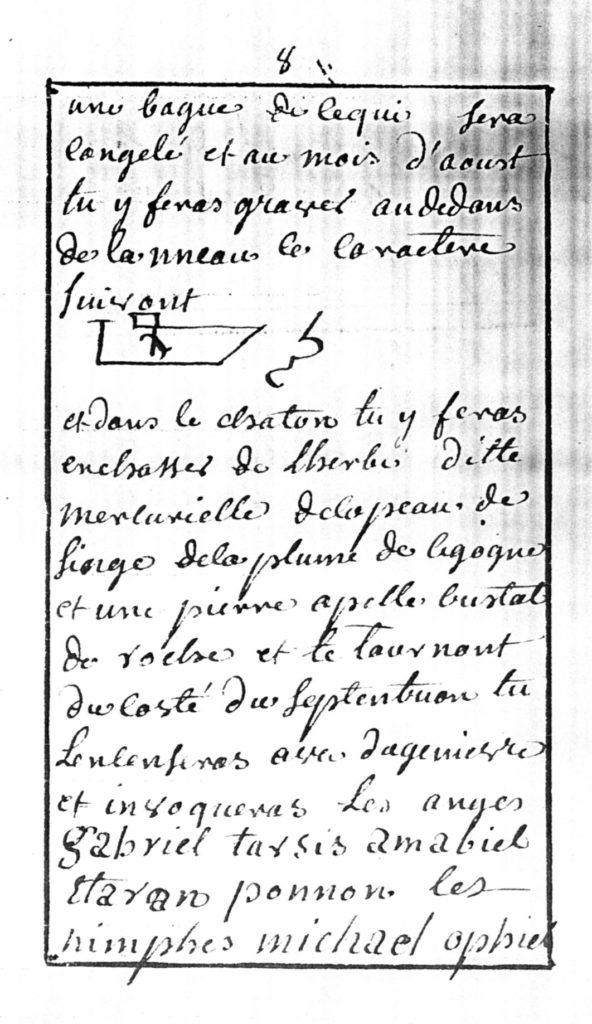 8
une bague de ce qui sera
congelé et au mois d'aoust
tu y feras graver au dedans
de la nneau le caractere
suivant
et dans le chaton tu y feras
enchasser de Lherbe ditte
mercurielle de la peau de
singe de la plume de cigogne
et une pierre apelle cristal
de roche et te tournont
du costé du septentrion tu
Lencenseras avec dugenievre
et invoqueras Les anges
gabriel tarsis amabiel
Etaran ponnon les
nimphes michael ophiel